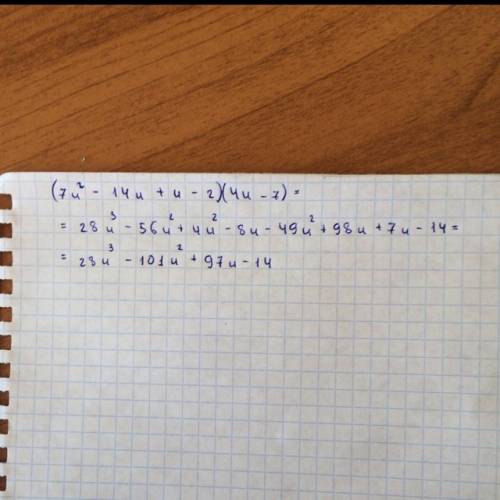 (7u² - 14u + u - 2)(4u - 7) =
= 28u³ - 56u² + 4u² - 8u - 49u² + 98u + 7u - 14 =
= 28u³ - 101u² + 97u - 14